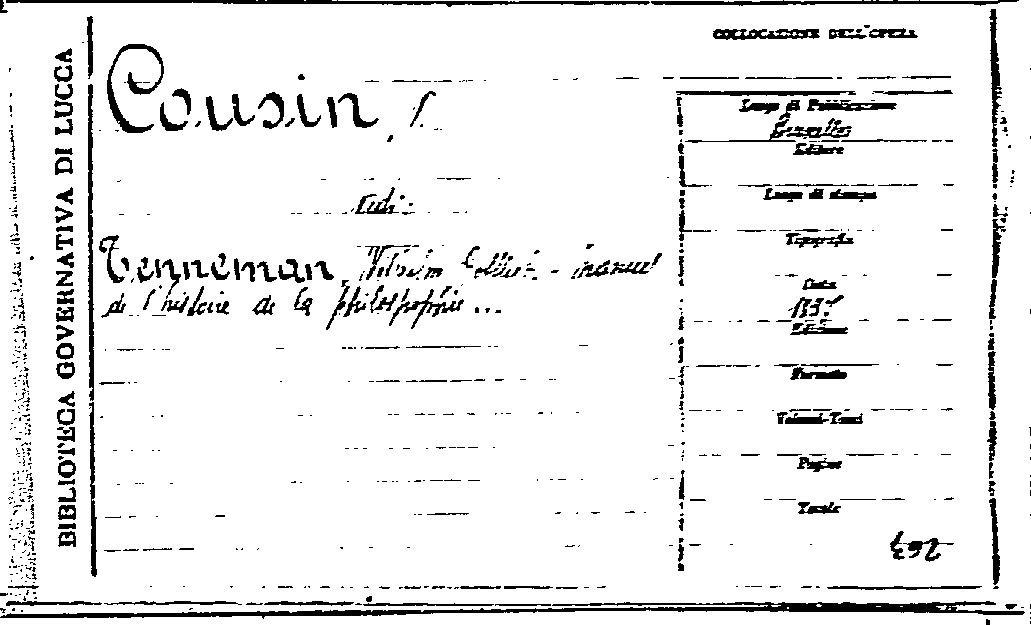 BIBLIOTECA GOVERNATIVA DI LUCCA
COLLOCAZIONE DELL'OPERA
Cousin,
vedi:
Tenneman, - manuel
de l'histoire de la philospophie...
Luogo di Pubblicazione
Bruxelles
Editore
Luogo di stampa
Tipografia
Data
1837
Edizione
Formato
Volumi-Tomi
Pagine
Tavole